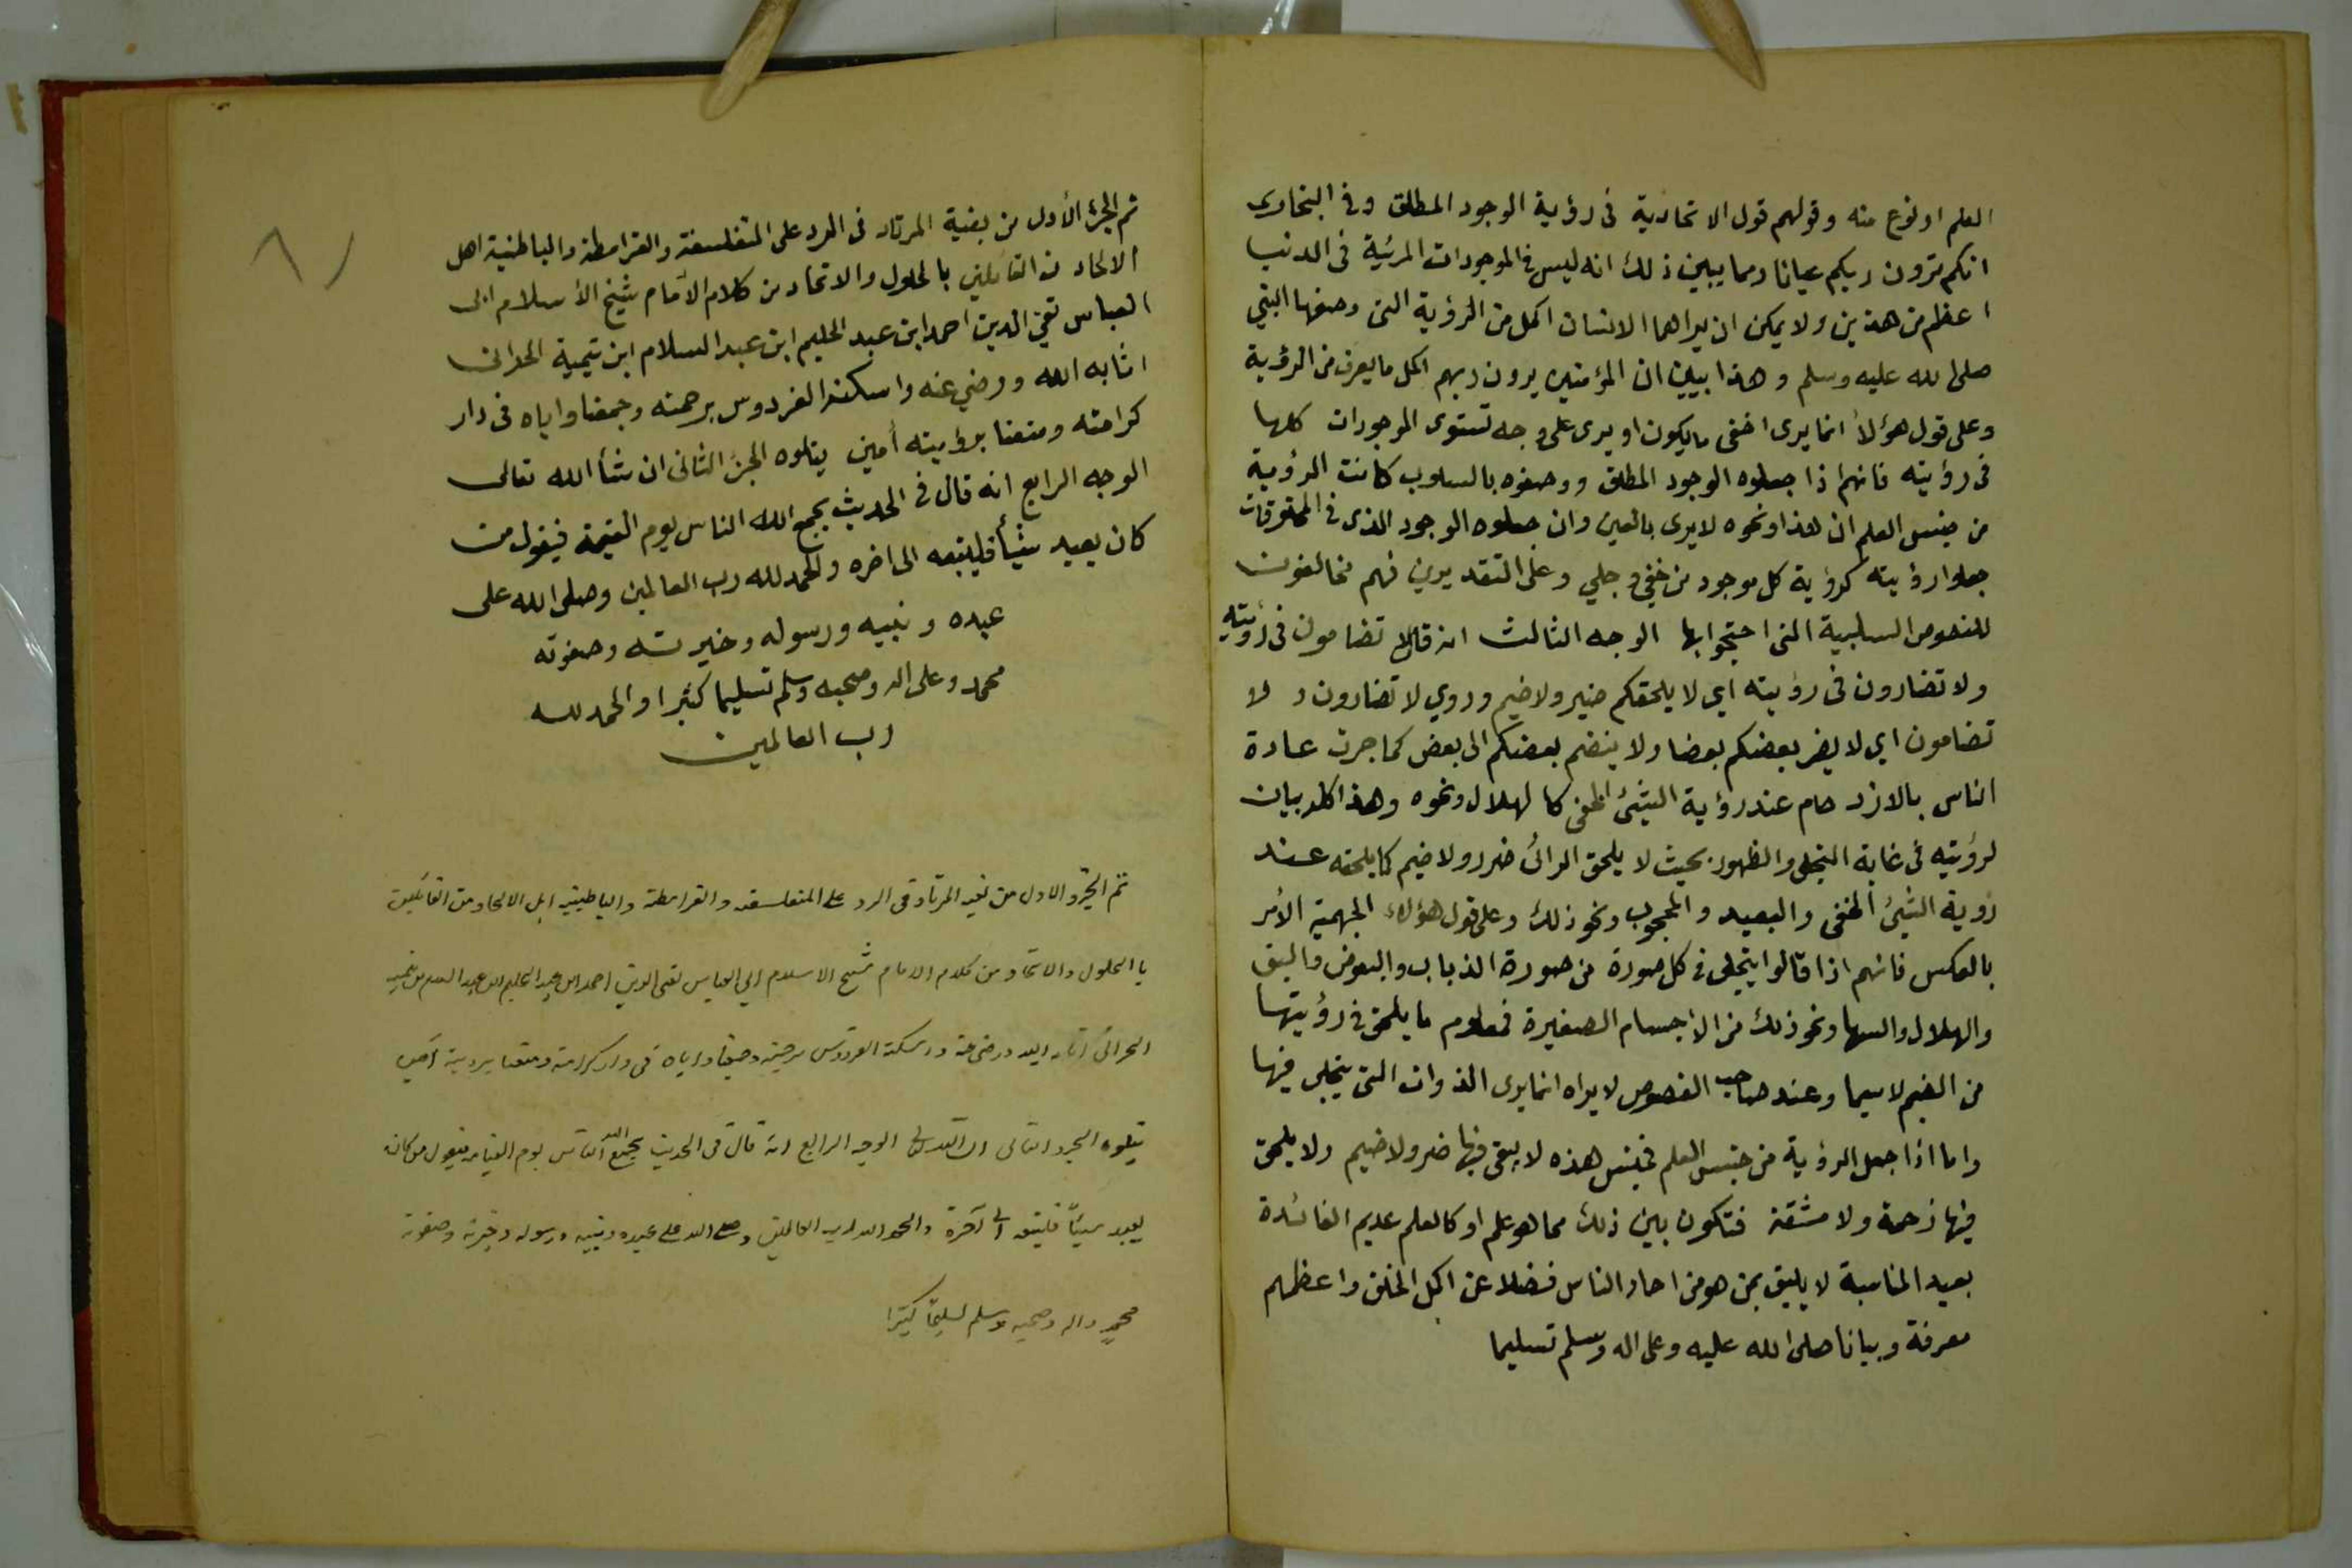 العلم او نوع منه وقولهم قول الاتحادية فى رؤية الوجود المطلق وفى البخارى
انكم ترون ربكم عيانا ومما يبين ذلك انه ليس فى الموجودات المرئية فى الدنيا
اعظم من هذين ولا يمكن ان يراهما الانسان اكمل من الرؤية التى وصفها النبي
صلى الله عليه وسلم وهذا يبين ان المؤمنين يرون ربهم اكمل ما يعرف من الرؤية
وعلى قول هؤلأ انما يرى اخفى ما يكون او يرى على وجه تستوى الموجودات كلها
فى رؤيته فانهم اذا جعلوه الوجود المطلق ووصفوه بالسلوب كانت الرؤية
من جنس العلم ان هذا ونحوه لا يرى بالعين وان جعلوه الوجود الذى فى المخلوقات
جعلوا رؤيته كرؤية كل موجود من خفي وجلي وعلى التقديرين فهم مخالفون
للنصوص السلبية التى احتجوا بها الوجه الثالث انه قال لا تضامون فى رؤيته
ولا تضارون فى رؤيته اي لا يلحقكم ضير ولا ضيم وروي لا تضارون ولا
تضامون اي لا يضر بعضكم بعضا ولا ينضم بعضكم الى بعض كما جرت عادة
الناس بالازدحام عند رؤية الشئ الخفى كالهلال ونحوه وهذا كله بيان
لرؤيته فى غاية التجلى والظهور بحيث لا يلحق الرائ ضرر ولا ضيم كما يلحقه عند
رؤية الشئ الخفى والبعيد والمحجوب ونحو ذلك وعلى قول هؤلاء الجهمية الأمر
بالعكس فانهم اذا قالوا يتجلى فى كل صورة من صورة الذباب والبعوض والبق
والهلال والسها ونحو ذلك من الاجسام الصغيرة فمعلوم ما يلحق فى رؤيتها
من الضيم لاسيما وعند صاحب الفصوص لا يراه انما يرى الذوات التى يتجلى فيها
واما اذا جعل الرؤية من جنس العلم فجنس هذه لا يبقى فيها ضر ولا ضيم ولا يلحق
فيها زحمة ولا مشقة فتكون بين ذلك مما هو علم او كالعلم عديم الفائدة
بعيد المناسبة لا يليق بمن هو من احاد الناس فضلا عن اكمل الخلق واعظمهم
معرفة وبيانا صلى الله عليه وعلى اله وسلم تسليما
تم الجزء الأول من بغية المرتاد فى الرد على المتفلسفة والقرامطة والباطنية اهل
الالحاد من القائلين بالحلول والاتحاد من كلام الامام شيخ الأسلام ابى
العباس تقي الدين احمد ابن عبد الحليم ابن عبد السلام ابن تيمية الحرانى
اثابه الله ورضي عنه واسكنه الفردوس برحمته وجمعنا واياه فى دار
كرامته ومتعنا برؤيته أمين يتلوه الجزء الثانى ان شأ الله تعالى
الوجه الرابع انه قال فى الحديث يجمع الله الناس يوم القيمة فيقول من
كان يعبد شيأ فليتبعه الى اخره والحمد لله رب العالمين وصلى الله على
عبده ونبيه ورسوله وخيرته وصفوته
محمد وعلى اله وصحبه وسلم تسليما كثيرا والحمد لله
رب العالمين
تم الجزو الاول من بغيه المرتاد فى الرد على المتفلسفه والقرامطة والباطنيه اهل الالحاد من القائلين
با الحلول والاتحاد من كلام الامام شيخ الاسلام ابي العباس تقى الدين احمد ابن عبد الحليم بن عبد السلام بن تيميه
الحرانى اثابه الله ورضى عنه واسكنه الفردوس برحمته وجمعنا واياه فى دار كرامته ومتعنا برويته آمين
يتلوه الجزو الثانى ان الوجه الرابع انه قال فى الحديث يجمع الله الناس يوم القيامه فيقول من كان
يعبد شيئاً فليتبعه الى آخره والحمد لله رب العالمين وصلى الله على عبده ونبيه ورسوله وخيرته وصفوته
محمدٍ واله وصحبه وسلم تسليمًا كثيرًا